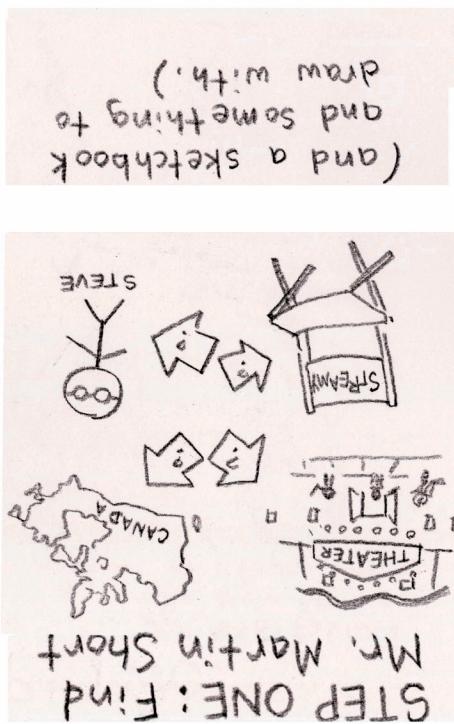 STEP ONE: Find
Mr. Martin Short
THEATER
CANADA
?
?
?
?
STREAMY
STEVE
(and a sketchbook
and something to
draw with.)